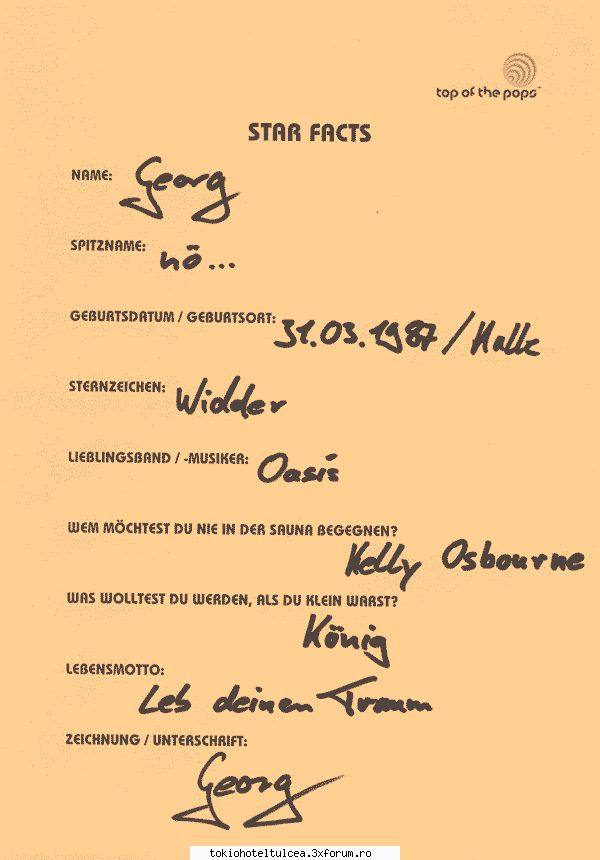 top of the pops
STAR FACTS
NAME: Georg
SPITZNAME: nö...
GEBURTSDATUM / GEBURTSORT: 31.03.1987 / Halle
STERNZEICHEN: Widder
LIEBLINGSBAND / -MUSIKER: Oasis
WEM MÖCHTEST DU NIE IN DER SAUNA BEGEGNEN?
Kelly Osbourne
WAS WOLLTEST DU WERDEN, ALS DU KLEIN WARST?
König
LEBENSMOTTO:
Leb deinen Traum
ZEICHNUNG / UNTERSCHRIFT:
Georg
tokiohoteltulcea.3xforum.ro